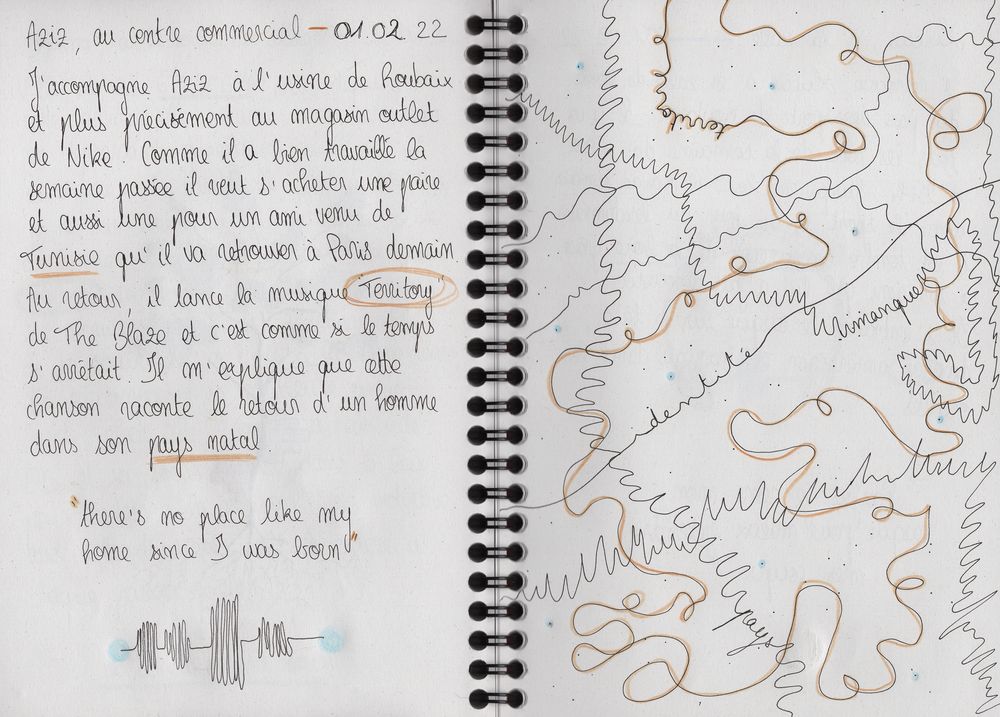 Aziz, au centre commercial — 01.02 22
J'accompagne Aziz à l'usine de Roubaix
et plus précisément au magasin outlet
de Nike. Comme il a bien travaillé la
semaine passée il veut s'acheter une paire
et aussi une pour un ami venu de
Tunisie qu'il va retrouver à Paris demain.
Au retour, il lance la musique "Territory"
de The Blaze et c'est comme si le temps
s'arrêtait. Il m'explique que cette
chanson raconte le retour d'un homme
dans son pays natal.
"there's no place like my
home since I was born"
territo
manque
identité
pays